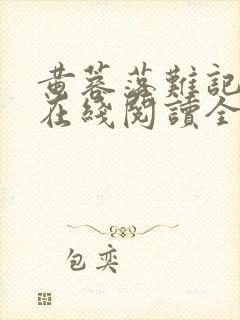 黄蓉落難記
在綫閱讀全
包奕